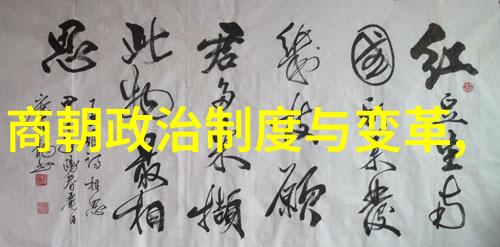 商朝政治制度与变革,
红豆生南
國春来發
幾枝願
君多采擷
此物最相
思